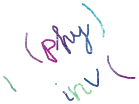 (phy)
) inv (